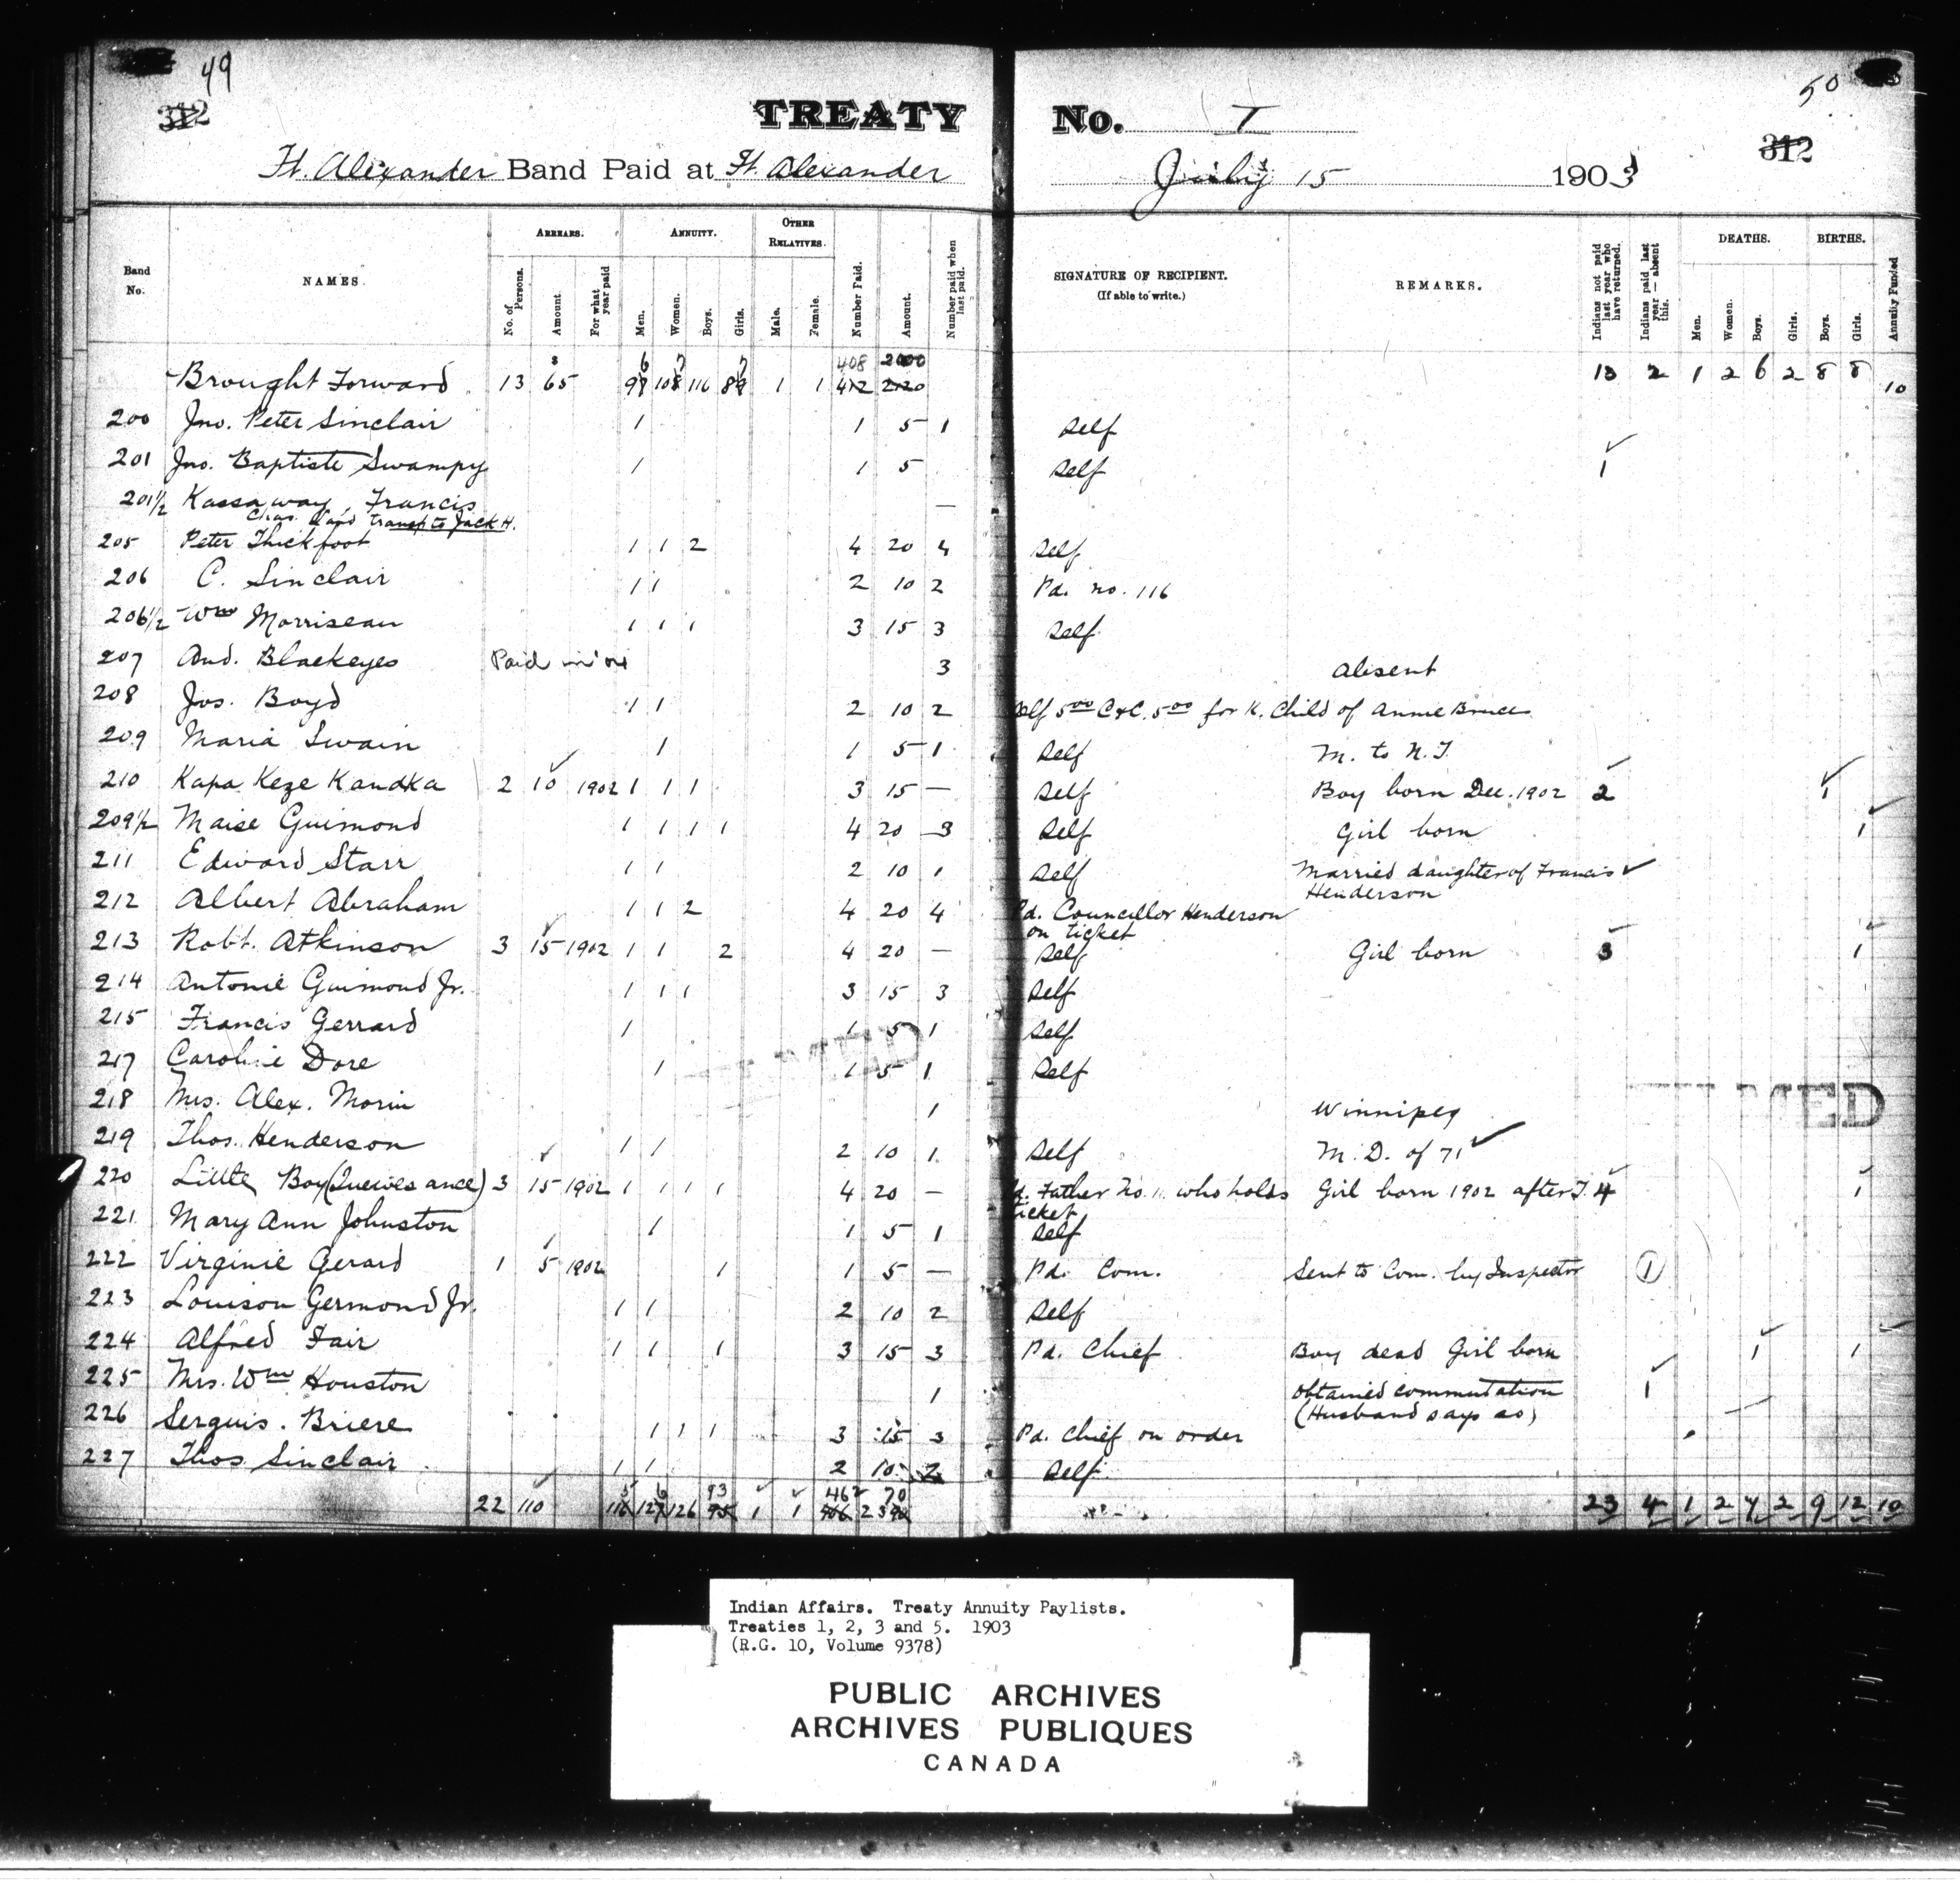 49
50
312
312
TREATY No. I
Ft. Alexander Band Paid at Ft. Alexander July 15 1903
Band No. NAMES. ARREARS. No. of Persons. Amount. For what year paid ANNUITY. Men. Women. Boys. Girls. OTHER RELATIVES. Male. Female. Number Paid. Amount. Number paid when last paid. SIGNATURE OF RECIPIENT. (If able to write.) REMARKS. Indians not paid last year who have returned. Indians paid last year — absent this. DEATHS. Men. Women. Boys. Girls. BIRTHS. Boys. Girls. Annuity Funded
6 7 7 408
Brought Forward 13 65 116 1 1 412 13 2 1 2 6 2 8 8 10
200 Jno. Peter Sinclair 1 1 5 1 Self
201 Jno. Baptiste Swampy 1 1 5 Self 1
201½ Kassaway, Francis —
Chas. transp to Jack H.
205 Peter Thickfoot 1 1 2 4 20 4 Self
206 C. Sinclair 1 1 2 10 2 Pd. no. 116
206½ Wm Morriseau 1 1 1 3 15 3 Self
207 And. Blackeyes Paid in 3 Absent
208 Jos. Boyd 1 1 2 10 2 Self 500 C&C. 500 for K. Child of Annie Bruce
209 Maria Swain 1 1 5 1 Self M. to N.T.
210 Kapa Keze Kandka 2 10 1902 1 1 1 3 15 — Self Boy born Dec. 1902 2 1
209½ Maise Guimond 1 1 1 1 4 20 3 Self Girl born 1
211 Edward Starr 1 1 2 10 1 Self Married daughter of Francis Henderson
212 Albert Abraham 1 1 2 4 20 4 Pd. Councillor Henderson on ticket
213 Robt. Atkinson 3 15 1902 1 1 2 4 20 — Self Girl born 3 1
214 Antonie Guimond Jr. 1 1 1 3 15 3 Self
215 Francis Gerrard 1 1 5 1 Self
217 Caroline Dore 1 1 5 1 Self
218 Mrs. Alex. Morin 1 Winnipeg
219 Thos. Henderson 1 1 2 10 1 Self M. D. of 71
220 Little Boy 3 15 1902 1 1 1 1 4 20 — Pd. Father No. 11 who holds ticket Girl born 1902 after T. 4 1
221 Mary Ann Johnston 1 1 5 1 Self
222 Virginie Gerard 1 5 1902 1 1 5 — Pd. Com. Sent to Com. by Inspector 1
223 Louison Germond Jr. 1 1 2 10 2 Self
224 Alfred Fair 1 1 1 3 15 3 Pd. Chief Boy dead Girl born 1 1
225 Mrs. Wm Houston 1 obtained commutation (Husband says so) 1
226 Serguis. Briere 1 1 1 3 15 3 Pd. Chief on order
227 Thos Sinclair 1 1 2 10 2 Self
5 6 93 462 70
22 110 116 127 126 95 1 1 466 23 4 1 2 7 2 9 12 10
Indian Affairs. Treaty Annuity Paylists.
Treaties 1, 2, 3 and 5. 1903
(R.G. 10, Volume 9378)
PUBLIC ARCHIVES
ARCHIVES PUBLIQUES
CANADA